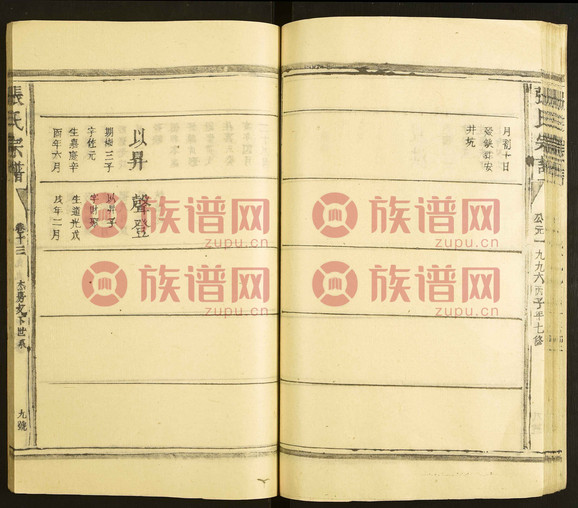 張氏宗譜
公元一九九六丙子年七修
月初十日
井坑
以昇
朝梅三子
字佐元
生嘉慶辛
酉年六月
聲登
以昇子
生道光戊
戌年二月
張氏宗譜
卷十三
下世系
九號
族谱网
zupu.cn
族谱网
zupu.cn
族谱网
zupu.cn
族谱网
zupu.cn